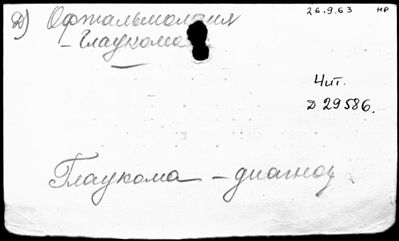 Д) Офтальмология
26.9.63 нр
- Глаукома
Чит.
Д 29586.
Глаукома - диагноз